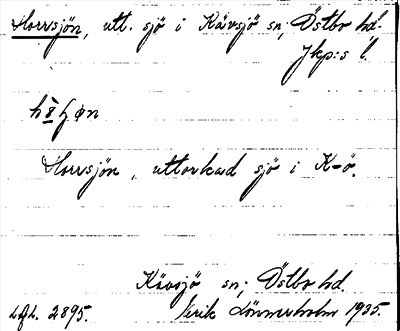 Horrsjön, utt. sjö i Kävsjö sn; Östbo hd.
Jkp:s l.
Horrsjön, uttorkad sjö i K-ö.
Kävsjö sn; Östbo hd.
2895. Erik Lönnerholm 1935.